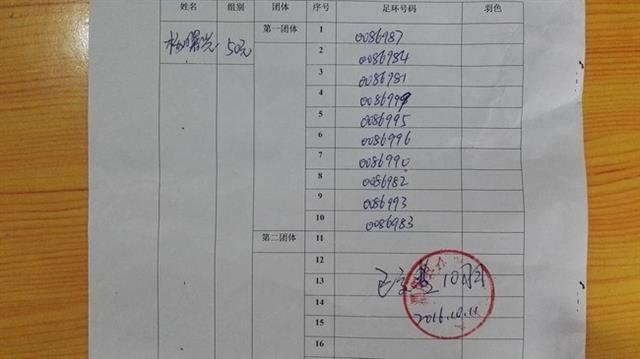 姓名 组别 团体 序号 足环号码 羽色
杨曙光 50元 第一团体 1 0086987
2 0086984
3 0086981
4 0086999
5 0086995
6 0086996
7 0086990
8 0086982
9 0086993
10 0086983
第二团体 11
12
13 10羽
14
2016.10.11
15
16